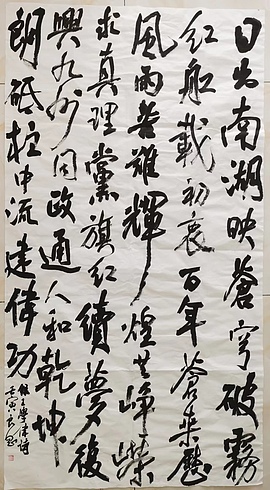 日出南湖映蒼穹破霧
红船載初衷百年蒼桑歷
風雨苦難輝煌共崢嶸
求真理黨旗红續夢復
興九州同政通人和乾坤
朗砥柱中流建偉功